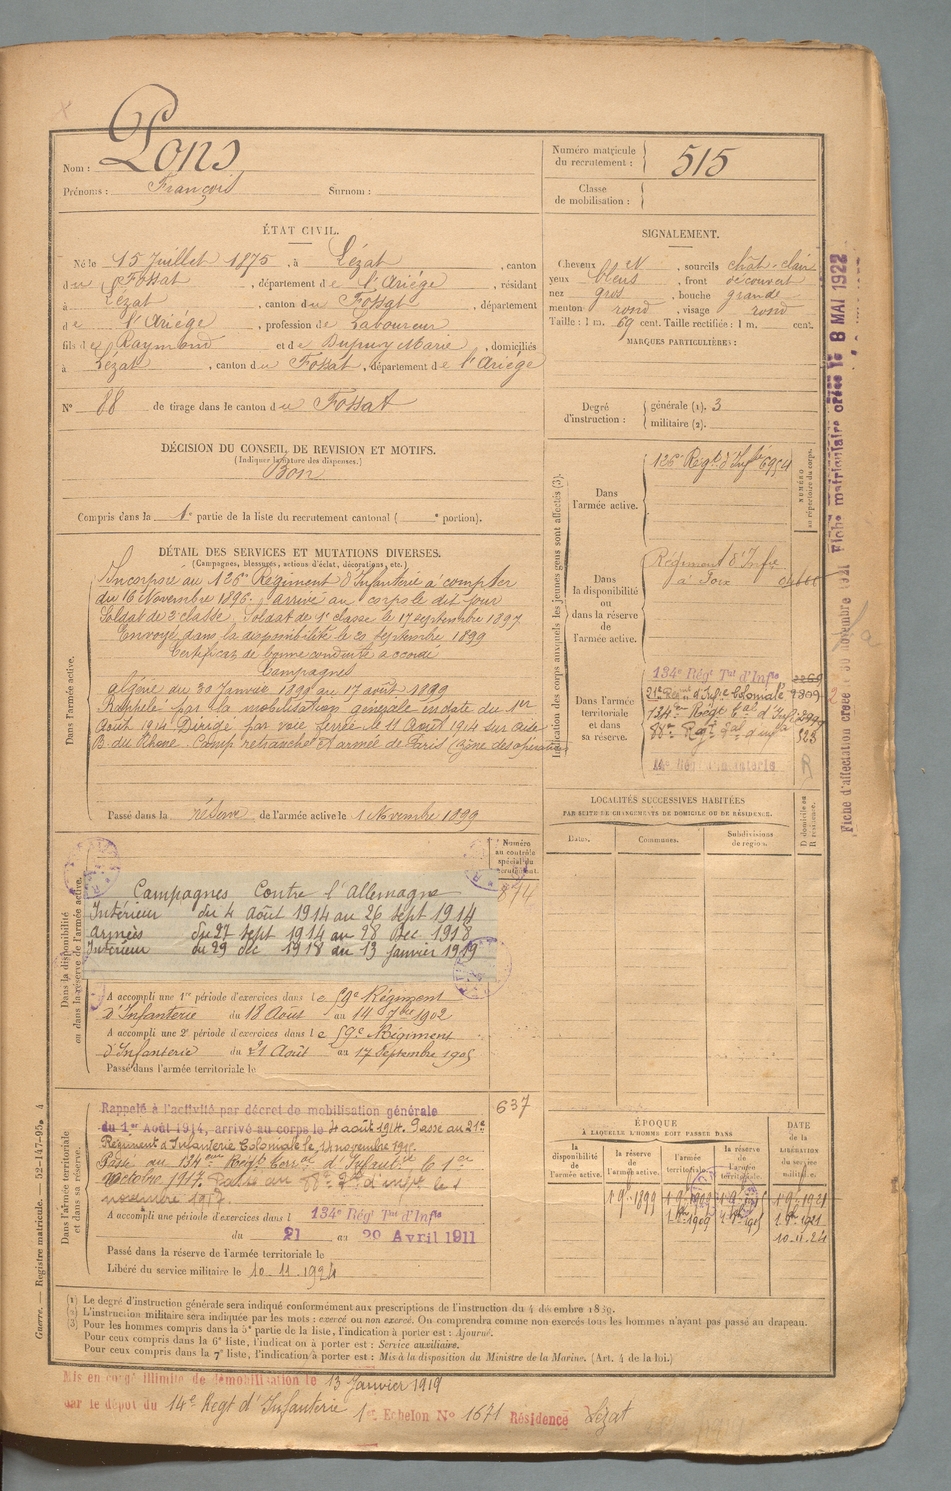 Nom : Pons
Prénoms : François Surnom :
Numéro matricule du recrutement : 515
Classe de mobilisation :
ÉTAT CIVIL.
Né le 15 Juillet 1875, à Lézat, canton
du Fossat, département de l'Ariége, résidant
à Lézat, canton du Fossat, département
de l'Ariége, profession de Laboureur
fils de Raymond et de Dupuy Marie, domiciliés
à Lézat, canton du Fossat, département de l'Ariége
N° 88 de tirage dans le canton du Fossat
SIGNALEMENT.
Cheveux N, sourcils chât-clair
yeux bleus, front découvert
nez gros, bouche grande
menton rond, visage rond
Taille : 1 m. 69 cent. Taille rectifiée : 1 m. cent.
MARQUES PARTICULIÈRES :
Degré d'instruction : générale (1). 3
militaire (2).
DÉCISION DU CONSEIL DE REVISION ET MOTIFS.
(Indiquer la nature des dispenses.)
Bon
Compris dans la 1e partie de la liste du recrutement cantonal ( e portion).
DÉTAIL DES SERVICES ET MUTATIONS DIVERSES.
(Campagnes, blessures, actions d'éclat, décorations, etc.)
Dans l'armée active.
Incorporé au 126e Régiment d'Infanterie à compter
du 16 Novembre 1896. arrivé au corps le dit jour
Soldat de 2e classe, Soldat de 1e classe le 17 septembre 1897
Envoyé dans la disponibilité le 20 Septembre 1899
Certificat de bonne conduite accordé
Campagnes
Algérie du 30 Janvier 1898 au 17 août 1899
Rappelé par la mobilisation générale en date du 1er
Août 1914 Dirigé par voie ferrée le 11 Août 1914 sur
B. du Rhône. Camp retranché d'armée de Paris (zône des opérations
Passé dans la réserve de l'armée active le 1 Novembre 1899
Indication des corps auxquels les jeunes gens sont affectés (3).
NUMÉRO au répertoire du corps.
Dans l'armée active.
126e Régt d'Infie 6954
Dans la disponibilité ou dans la réserve de l'armée active.
Régiment d'Infie
à Foix
Dans l'armée territoriale et dans sa réserve.
134e Régt Tal d'Infie
21e Régt d'Infie Coloniale 9809
134e Régt tal d'Infie
88e Regt tal d'infie 323
14e Régt Infanterie
R
LOCALITÉS SUCCESSIVES HABITÉES
PAR SUITE DE CHANGEMENTS DE DOMICILE OU DE RÉSIDENCE.
Dates. Communes. Subdivisions de région. D domicile ou R résidence.
Numéro au contrôle spécial du recrutement.
894
Dans la disponibilité ou dans la réserve de l'armée active.
Campagnes Contre l'Allemagne
Intérieur du 4 août 1914 au 26 sept 1914
Armées du 27 sept 1914 au 28 Dec 1918
Intérieur du 29 dec 1918 au 13 janvier 1919
A accompli une 1re période d'exercices dans le 59e Régiment
d'Infanterie du 18 Août au 14 7bre 1902
A accompli une 2e période d'exercices dans le 59e Régiment
d'Infanterie du 21 Août au 17 Septembre 1905
Passé dans l'armée territoriale le
637
Dans l'armée territoriale et dans sa réserve.
Rappelé à l'activité par décret de mobilisation générale
du 1er Août 1914, arrivé au corps le 4 août 1914. Passé au 21e
Régiment d'Infanterie Coloniale le 14 novembre 191
Passé au 134eme Regt Terral d'Infanterie le 1er
octobre 1917. Passé au 88e Rt d'infie le 1
novembre 191
A accompli une période d'exercices dans l 134e Régt Tal d'Infie
du 21 au 29 Avril 1911
Passé dans la réserve de l'armée territoriale le
Libéré du service militaire le 10.11.1924
ÉPOQUE
À LAQUELLE L'HOMME DOIT PASSER DANS
la disponibilité de l'armée active. la réserve de l'armée active. l'armée territoriale. la réserve de l'armée territoriale.
DATE de la LIBÉRATION du service militaire.
1 9e 1899 1 9e 1909 1 9e 1915 1 9e 1921
1 1909 1 1915 1 1921
10.11.24
(1) Le degré d'instruction générale sera indiqué conformément aux prescriptions de l'instruction du 4 décembre 1889.
(2) L'instruction militaire sera indiquée par les mots : exercé ou non exercé. On comprendra comme non exercés tous les hommes n'ayant pas passé au drapeau.
(3) Pour les hommes compris dans la 5e partie de la liste, l'indication à porter est : Ajourné.
Pour ceux compris dans la 6e liste, l'indication à porter est : Service auxiliaire.
Pour ceux compris dans la 7e liste, l'indication à porter est : Mis à la disposition du Ministre de la Marine. (Art. 4 de la loi.)
Mis en congé illimité de démobilisation le 13 Janvier 1919
par le dépôt du 14e Regt d'Infanterie 1er Echelon N° 1671 Résidence Lézat
Guerre. — Registre matricule. — 52-147-95. 4
Fiche d'affectation créée le 30 novembre 1921 Fiche matriculaire créée le 8 MAI 1922